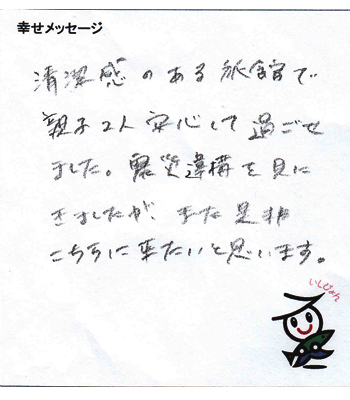 幸せメッセージ
清潔感のある旅館で
親子2人安心して過ごせ
ました。震災遺構を見に
きましたが、また是非
こちらに来たいと思います。
いしぴょん